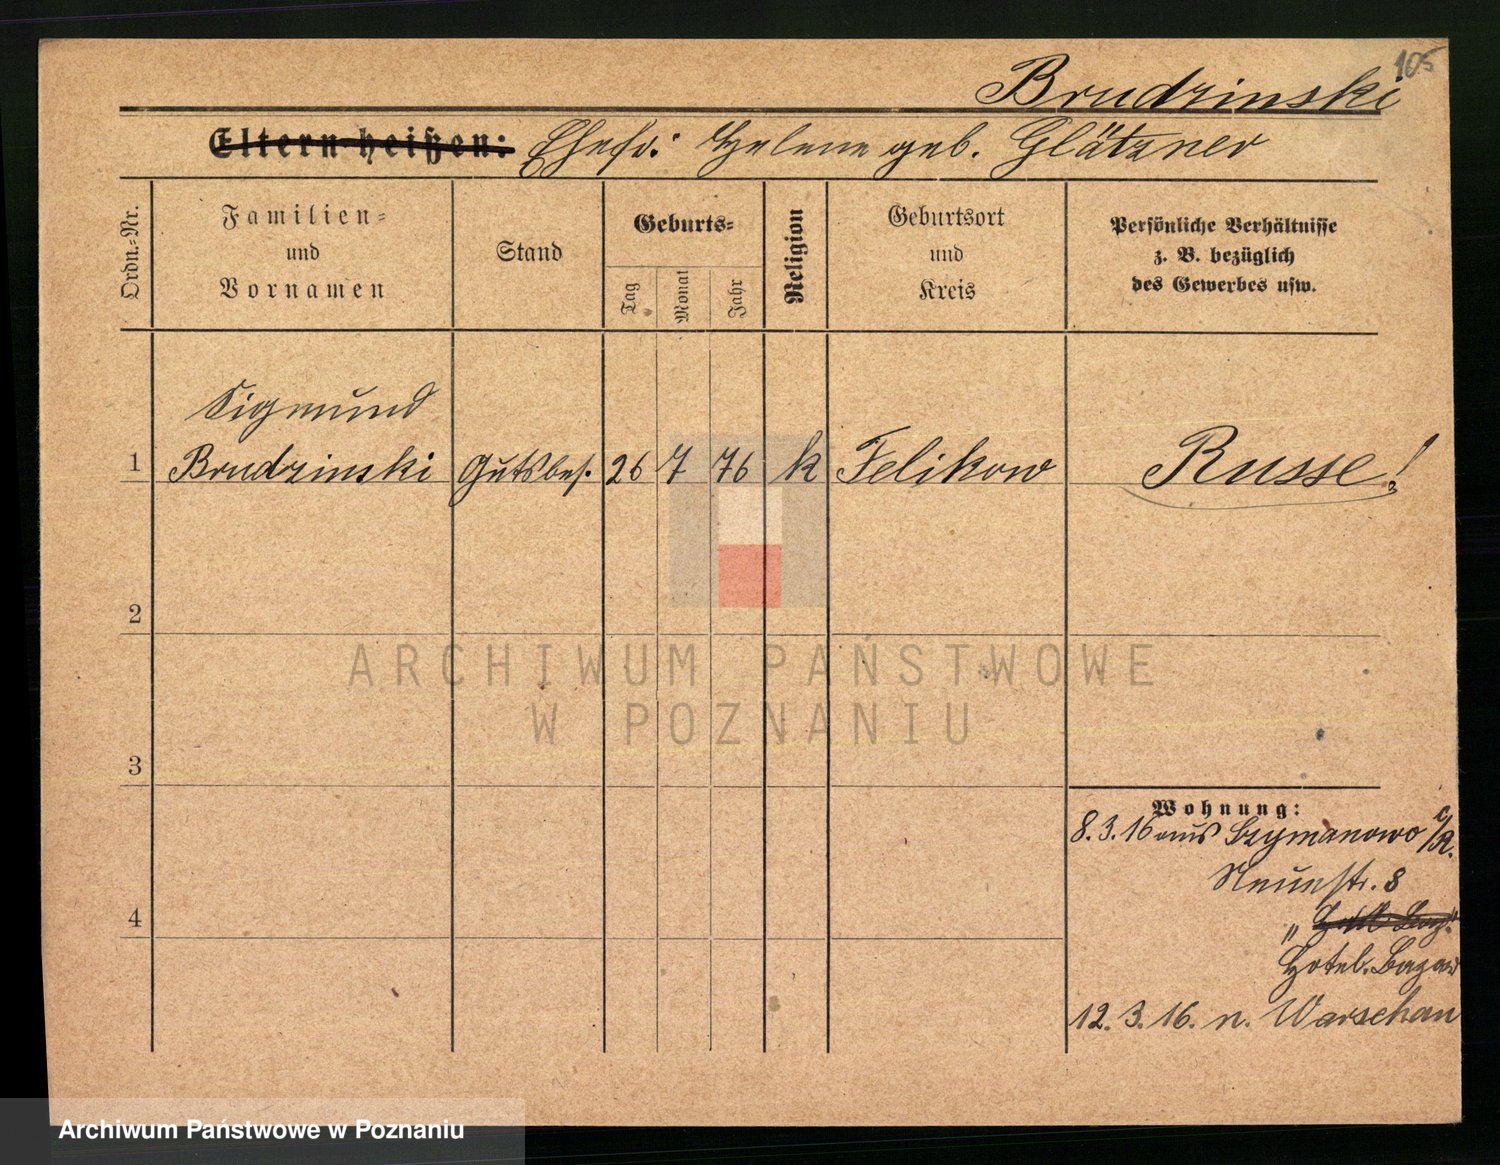 105
Brudzinski
Eltern heißen: Ehefr: Helene geb. Glätzner
Ordn.-Nr.
Familien-
und
Vornamen
Stand
Geburts-
Tag
Monat
Jahr
Religion
Geburtsort
und
Kreis
Persönliche Verhältnisse
z. B. bezüglich
des Gewerbes usw.
Sigmund
1 Brudzinski Gutsbes. 26 7 76 k Felikow Russe!
2
ARCHIWUM PAŃSTWOWE
W POZNANIU
3
Wohnung:
8.3.16 aus Szymanowo c/R.
Neuestr. 8
"
Hotel Bazar
4
12.3.16. n. Warschau
Archiwum Państwowe w Poznaniu